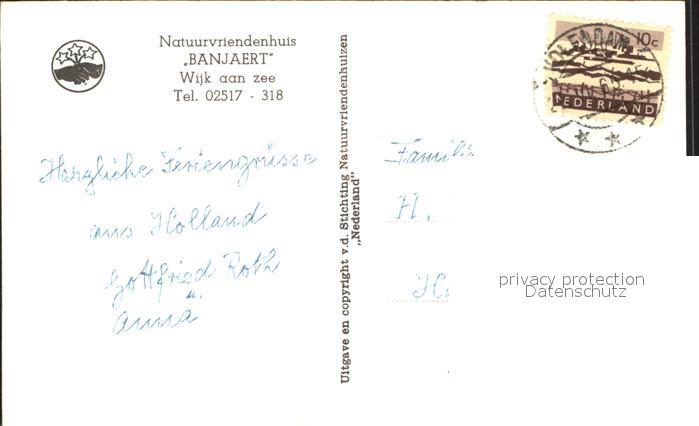 Natuurvriendenhuis
„BANJAERT"
Wijk aan zee
Tel. 02517 - 318
Herzliche Feriengrüsse
aus Holland
Gottfried Roth
u.
Anna
Uitgave en copyright v.d. Stichting Natuurvriendenhuizen
„Nederland"
10c
NEDERLAND
VOLENDAM
Famili
H.
H
privacy protection
Datenschutz